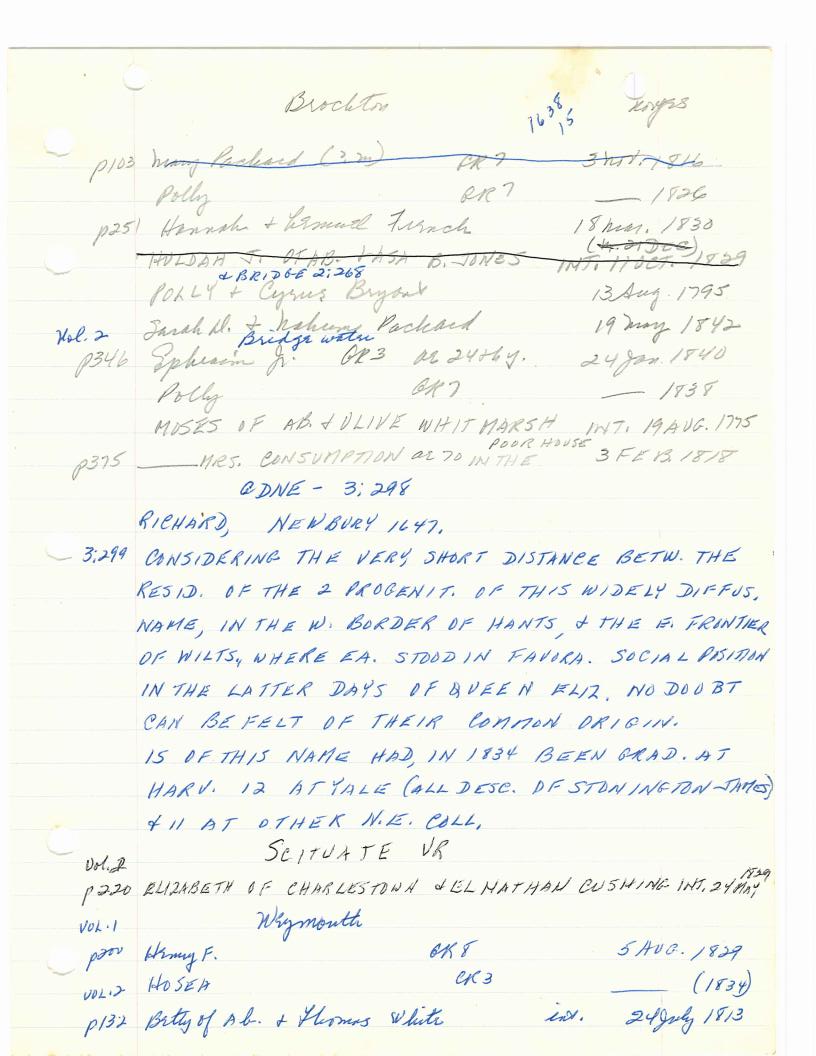 Brockton 1638 15 Noyes
p103 Mary Packard (2m) GR7 3 Nov. 1816
Polly GR7 — 1826
p251 Hannah & Lemuel French 18 Mar. 1830
(14. 21 DEC)
HULDAH J. OF AB. & ASA B. JONES INT. 11 OCT. 1829
& BRIDGE 2;268
POLLY & Cyrus Bryant 13 Aug. 1795
Sarah D. & Nahum Packard 19 May 1842
Vol. 2 Bridgewater
p346 Ephraim Jr. GR3 ae 24th y. 24 Jan. 1840
Polly GR7 — 1838
MOSES OF AB. & OLIVE WHITMARSH INT. 19 AUG. 1775
p375 ——MRS. CONSUMPTION ae 70 IN THE POOR HOUSE 3 FEB. 1818
GDNE - 3;298
RICHARD, NEWBURY 1647.
3;299 CONSIDERING THE VERY SHORT DISTANCE BETW. THE
RESID. OF THE 2 PROGENIT. OF THIS WIDELY DIFFUS.
NAME, IN THE W. BORDER OF HANTS, & THE E. FRONTIER
OF WILTS, WHERE EA. STOOD IN FAVORA. SOCIAL POSITION
IN THE LATTER DAYS OF QUEEN ELIZ. NO DOUBT
CAN BE FELT OF THEIR COMMON ORIGIN.
15 OF THIS NAME HAD, IN 1834 BEEN GRAD. AT
HARV. 12 AT YALE (ALL DESC. OF STONINGTON-JAMES)
& 11 AT OTHER N.E. COLL.
SCITUATE VR
Vol. 2
p220 ELIZABETH OF CHARLESTOWN & ELNATHAN CUSHING INT. 24 MAY 1829
VOL. 1 Weymouth
p200 Henry F. GR8 5 AUG. 1829
VOL. 2 HOSEA CR3 —— (1834)
p132 Betty of Ab. & Thomas White int. 24 July 1813